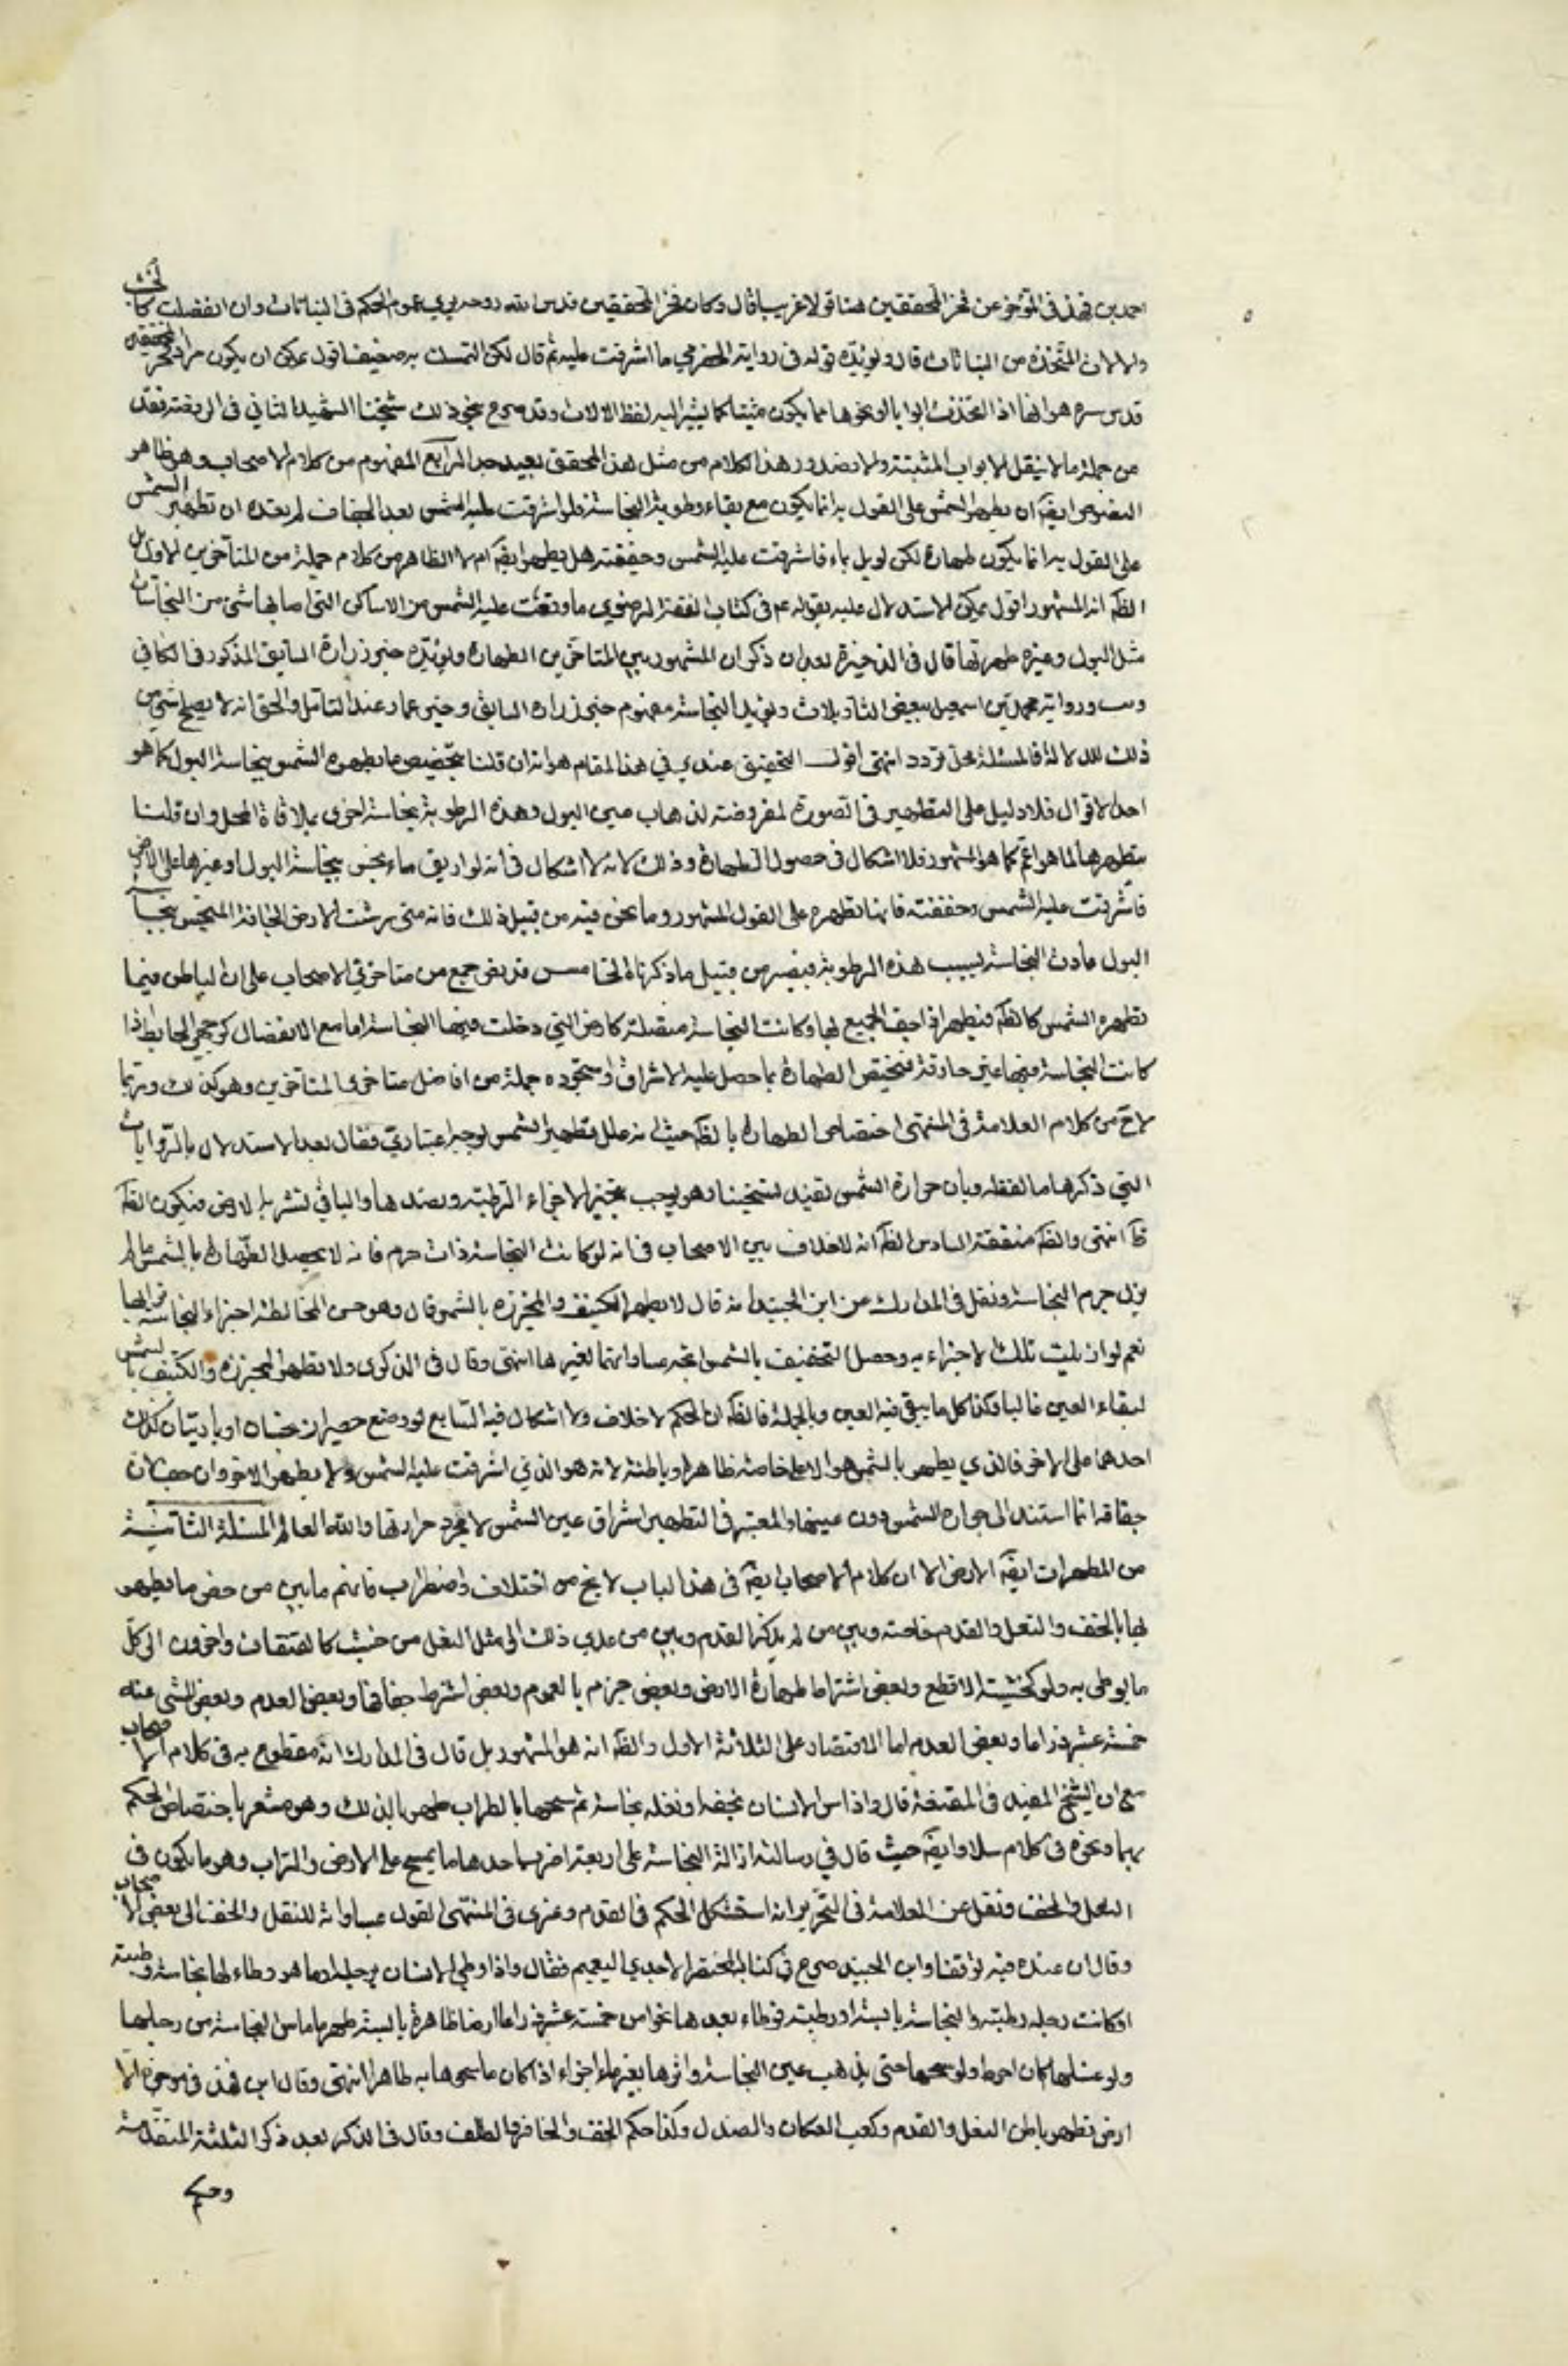 احمد بن فهد في الموجز عن فخر المحققين هنا قولا غريبا قال وكان فخر المحققين قدس الله روحه يرى عموم الحكم في النباتات وان انفصلت كالخشب
والالات المتخذة من النباتات قال ويؤيده قوله في رواية الحضرمي ما اشرقت عليه ثم قال لكن التمسك به ضعيف اقول يمكن ان يكون مراد فخر المحققين
قدس سره هو انها اذا اتخذت ابوابا او نحوها مما يكون مثبتا كما يشير اليه لفظ الالات وقد صرح بنحو ذلك شيخنا الشهيد الثاني في الروضة فعد
من جملة ما لا ينقل الابواب المثبتة والا فصدور هذا الكلام من مثل هذا المحقق بعيد جدا الرابع المفهوم من كلام الاصحاب وهو ظاهر
النصوص ايضه ان يطهر الشمس على القول به انما يكون مع بقاء رطوبة النجاسة فلو اشرقت عليه الشمس بعد الجفاف لم يفده ان تطهير الشمس
على القول به انما يكون طهارة لكن لو بل بماء فاشرقت عليه الشمس وجففته هل يطهر ايضه ام لا الظاهر من كلام جملة من المتاخرين الاول بل
الظه انه المشهور اقول يمكن الاستدلال عليه بقوله ع في كتاب الفقه الرضوي ما وقعت عليه الشمس من الاماكن التي اصابها شئ من النجاسات
مثل البول وغيره طهرتها قال في الذخيرة بعد ان ذكر ان المشهور بين المتاخرين الطهارة ويؤيده خبر زرارة السابق المذكور في الكافي
ورواية محمد بن اسمعيل ببعض التأويلات ويؤيد النجاسة مفهوم خبر زرارة السابق وخبر عمار عند التأمل والحق انه لا يصلح شئ من
ذلك للدلالة فالمسئلة محل تردد انتهى اقول التحقيق عندي في هذا المقام هو انه ان قلنا بتخصيص ما يطهره الشمس بنجاسة البول كما هو
احد الاقوال فلا دليل على التطهير في الصورة المفروضة لذهاب عين البول وهذه الرطوبة نجاسة اخرى بملاقاة المحل وان قلنا
بتطهيرها لما هو اعم كما هو المشهور فلا اشكال في حصول الطهارة وذلك لانه لا اشكال في انه لو اريق ماء نجس بنجاسة البول او غيرها على الارض
فاشرقت عليه الشمس وجففته فانها تطهره على القول المشهور وما نحن فيه من قبيل ذلك فانه متى رشت الارض الجافة المتنجس بنجاسة
البول عادت النجاسة بسبب هذه الرطوبة فيصير من قبيل ما ذكرناه الخامس قد نص جمع من متاخري الاصحاب على ان الباطن فيما
تطهره الشمس كالظه فيطهر اذا جف الجميع بها وكانت النجاسة متصلة كارض التي دخلت فيها النجاسة اما مع الانفصال كوجهي الحائط اذا
كانت النجاسة فيها غير خارقة فيختص الطهارة بما حصل عليه الاشراق واستجوده جملة من افاضل متاخري المتاخرين وهو كذلك وربما
لاح من كلام العلامة في المنتهى اختصاص الطهارة بالظه حيث انه علل تطهير الشمس لوجه اعتباري فقال بعد الاستدلال بالروايات
التي ذكرها ما لفظه وبان حرارة الشمس تفيد تسخينا وهو يوجب تبخير الاجزاء الرطبة وتصعدها والباقي تشربه الارض فيكون الظه
طا انتهى والظه ضعفه السادس الظه انه لا خلاف بين الاصحاب في انه لو كانت النجاسة ذات جرم فانه لا يحصل الطهارة بالشمس ما لم
يزل جرم النجاسة ونقل في المدارك عن ابن الجنيد انه قال لا يطهر الكنيف والمجزرة بالشمس قال وهو حسن لمخالطة اجزاء النجاسة اجزائها
نعم لو ازيلت تلك الاجزاء وحصل التجفيف بالشمس اتجه مساواتها لغيرها انتهى وقال في الذكرى ولا تطهر المجزرة والكنيف بالشمس
لبقاء العين غالبا وكذا كل ما يبقى فيه العين وبالجملة فالظه ان الحكم لا خلاف ولا اشكال فيه السابع لو وضع حصيران نجسان او باريتان كذلك
احدهما على الاخر فالذي يطهر بالشمس هو الاعلى خاصة ظاهره وباطنه لانه هو الذي اشرقت عليه الشمس ولا يطهر الاخر وان جف لان
جفافه انما استند الى حرارة الشمس دون عينها والمعتبر في التطهير اشراق عين الشمس لا مجرد حرارتها والله العالم المسئلة الثانية
من المطهرات ايضه الارض الا ان كلام الاصحاب ايضه في هذا الباب لا يخ من اختلاف واضطراب فانهم ما بين من خص ما يطهر
بها بالخف والنعل والقدم خاصة وبين من لم يذكر القدم وبين من عدى ذلك الى مثل النعل من خشب كالقبقاب واخرون الى كل
ما يوطى به ولو كخشبة الاقطع وبعض اشترط طهارة الارض وبعض جزم بالعموم وبعض اشترط جفافها وبعض العدم وبعض المشي عنه
خمسة عشر ذراعا وبعض العدم اما الاقتصار على الثلاثة الاول والظه انه هو المشهور بل قال في المدارك انه مقطوع به في كلام الاصحاب
مع ان الشيخ المفيد في المقنعة قال واذا داس الانسان بخفه او نعله نجاسة ثم مسحها بالتراب طهرها بذلك وهو مشعر باختصاص الحكم
بهما ونحوه في كلام سلار ايضه حيث قال في رسالته ازالة النجاسة على اربعة اضرب احدها ما يمسح على الارض والتراب وهو ما يكون في
النعل والخف ونقل عن العلامة في التحرير انه استشكل الحكم في القدم وعزى في المنتهى القول بمساواته للنعل والخف الى بعض الاصحاب
وقال ان عنده فيه توقفا وابن الجنيد صرح في كتاب المختصر الاحمدي التعميم فقال واذا وطئ الانسان برجله او ما هو وطاء لها نجاسة رطبة
او كانت رجله رطبة والنجاسة يابسة او رطبة فوطاء بعدها نحوا من خمسة عشر ذراعا ارضا طاهرة يابسة طهر ما ماس النجاسة من رجله بها
ولو غسلها كان احوط ولو مسحها حتى يذهب عين النجاسة واثرها بغير ماء اجزاء اذا كان ما مسحها به طاهرا انتهى وقال ابن فهد في موجزه الا
ارض تطهر باطن النعل والقدم وكعب العكاز والصندل وكذا حكم الخف والحافر والظلف وقال في الذكرى بعد ذكر الثلثة المتقدمة
وحكم